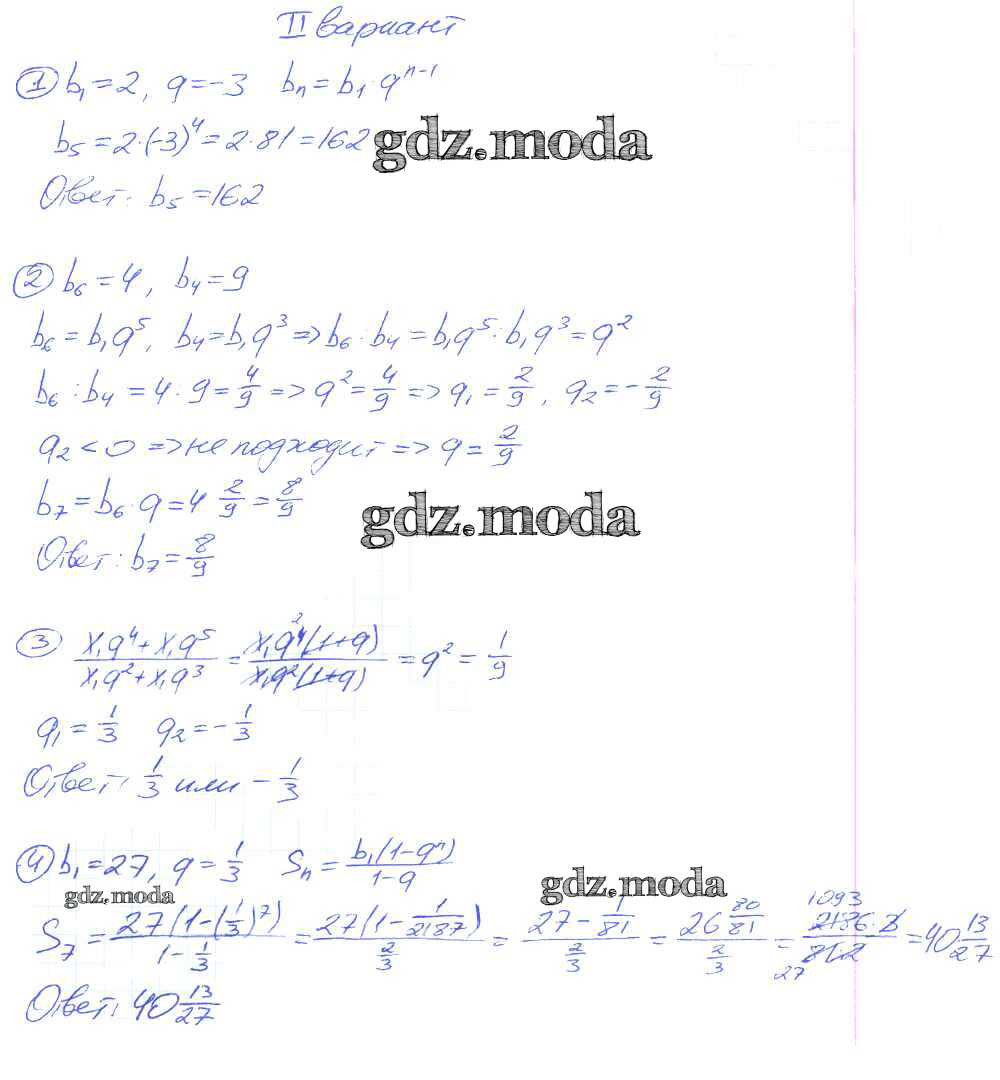 II вариант
① b₁ = 2, q = -3 bₙ = b₁ · qⁿ⁻¹
b₅ = 2·(-3)⁴ = 2·81 = 162
gdz.moda
Ответ: b₅ = 162
② b₆ = 4, b₄ = 9
b₆ = b₁q⁵, b₄ = b₁q³ => b₆ : b₄ = b₁q⁵ : b₁q³ = q²
b₆ : b₄ = 4 · 9 = 4/9 => q² = 4/9 => q₁ = 2/9, q₂ = -2/9
q₂ < 0 => не подходит => q = 2/9
b₇ = b₆ · q = 4 2/9 = 8/9
gdz.moda
Ответ: b₇ = 8/9
③ (x₁q⁴ + x₁q⁵)/(x₁q² + x₁q³) = (x₁q⁴(1+q))/(x₁q²(1+q)) = q² = 1/9
q₁ = 1/3 q₂ = -1/3
Ответ: 1/3 или -1/3
④ b₁ = 27, q = 1/3 Sₙ = b₁(1-qⁿ)/(1-q)
gdz.moda
gdz.moda
S₇ = 27(1-(1/3)⁷)/(1-1/3) = 27(1-1/2187)/(2/3) = (27-1/81)/(2/3) = (26 80/81)/(2/3) = 1093 2186·3/(81·2) 27 = 40 13/27
Ответ: 40 13/27